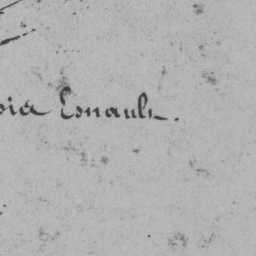 oice Esnault.